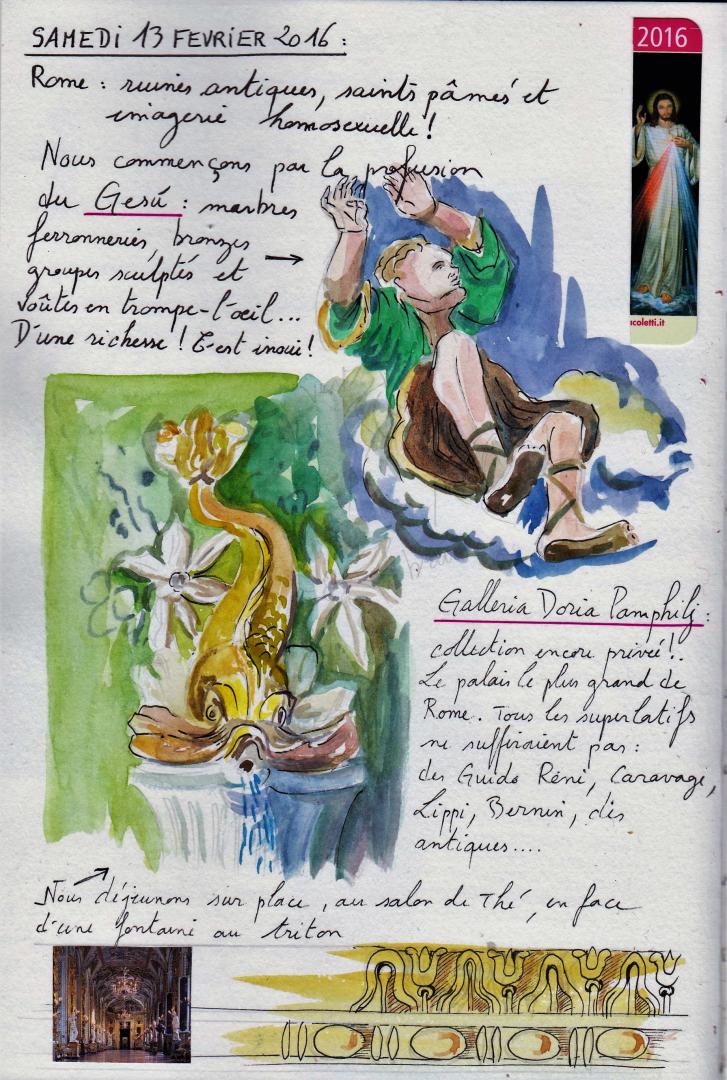 SAMEDI 13 FEVRIER 2016 :
2016
Rome : ruines antiques, saints pâmés et
imagerie homosexuelle !
Nous commençons par la profusion
du Gesú : marbres
ferronneries, bronzes
groupes sculptés et
voûtes en trompe-l'œil...
D'une richesse ! C'est inouï !
coletti.it
Galleria Doria Pamphilj :
collection encore privée !.
Le palais le plus grand de
Rome. Tous les superlatifs
ne suffiraient pas :
des Guido Réni, Caravage,
Lippi, Bernin, des
antiques....
Nous déjeunons sur place, au salon de Thé, en face
d'une fontaine au triton